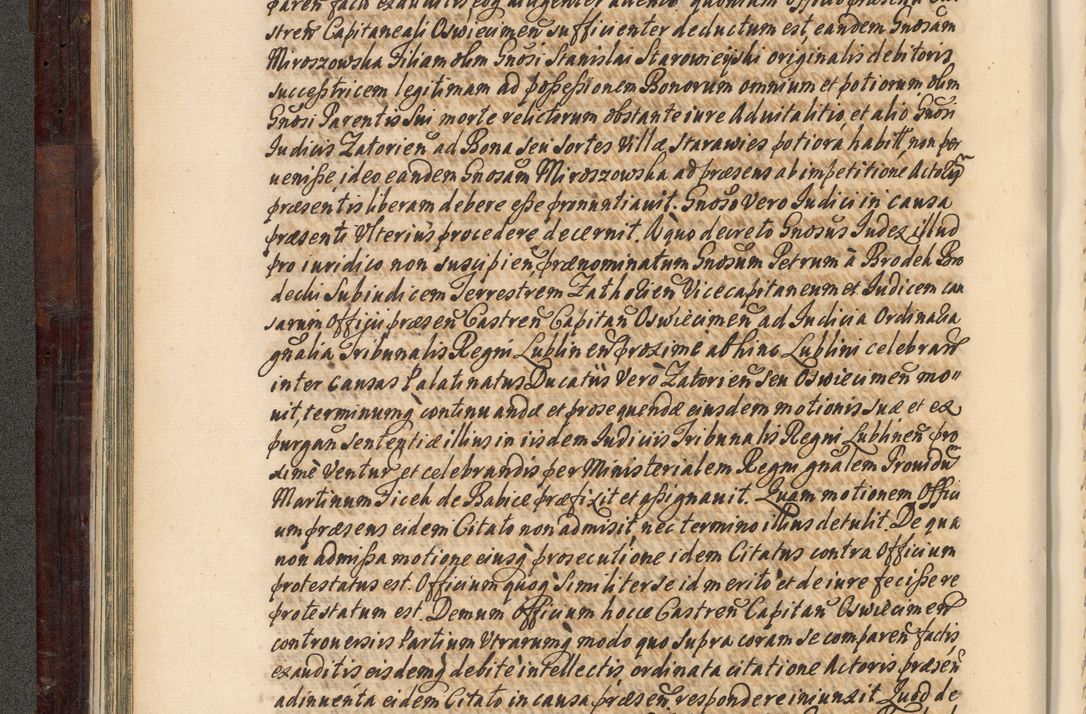 paren facto exauditis eoq diligenter attento, quoniam Officio præsenti Ca
stren Capitaneali Oswiecimen sufficienter deductum est, eandem Gnosam
Miroszowska Filiam olim Gnosi Stanislai Starowieyski originalis debitoris
successtricem legitimam ad possessionem Bonorum omnium et potiorum olim
Gnosi Parentis sui morte relictorum obstante iure Aduitalitio, et alio Gnosi
Iudicis Zatorien ad Bona seu Sortes Villæ Starawies potiora habitt, non per
uenisse ideo eandem Gnosam Miroszowska ad præsens ab impetitione Actorū
præsentis liberam debere esse pronuntiauit. Gnoso vero Iudici in causa
præsenti Vlterius procedere decernit. A quo decreto Gnosus Iudex illud
pro iuridico non suscipien prænominatum Gnosum Petrum à Brodeh Bro
decki Subiudicem Terrestrem Zathorien Vicecapitaneum et Iudicem cau
sarum Officij præsen Castren Capitan Oswiecimen ad Iudicia Ordinaria
gnalia Tribunalis Regni Lublinen proxime ab hinc Lublini celebran
inter causas Palatinatus Ducatus vero Zatorien seu Oswiecimen mo"
uit, terminumq continuandæ et prosequendæ eiusdem motionis suæ et ex
purgan sententiæ illius in iisdem Iudiciis Tribunalis Regni Lublinen pro
ximè Ventur et celebrandis per Ministerialem Regni gnalem Prouidū
Martinum Ficek de Babice præfixit et assignauit. Quam motionem Offici
um præsens eidem Citato non admisit, nec termino illius detulit. De qua
non admissa motione eiusq prosecutione idem Citatus contra Officium
protestatus est. Officium quoq similiter se id merito et de iure fecisse re
protestatum est. Demum Officium hocce Castren Capitan Oswiecimen
controuersiis Partium Vtrarumq modo quo supra coram se comparen factis
exauditis eisdemq debite intellectis ordinata citatione Actoris præsen
adinuenta eidem Citato in causa præsen respondere iniunxit. Quod de